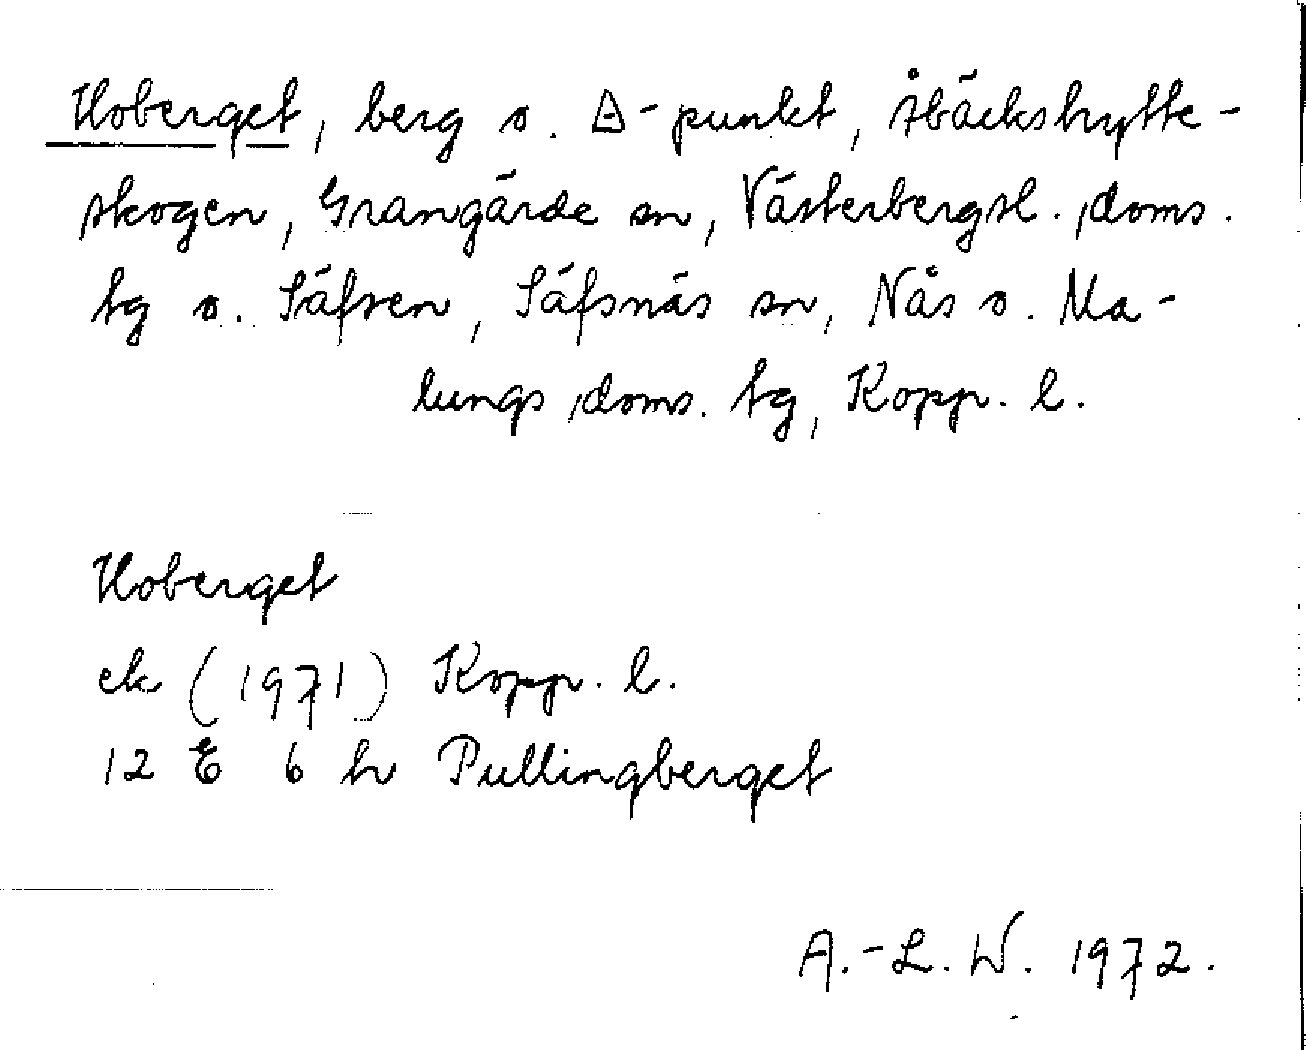 Hoberget, berg o. △-punkt, Åbäckshytte-
skogen, Grangärde sn, Västerbergsl. doms.
tg o. Säfsen, Säfsnäs sn, Nås o. Ma-
lungs doms. tg, Kopp. l.
Hoberget
ek (1971) Kopp. l.
12 E 6 h Pullingberget
A.-L. W. 1972.